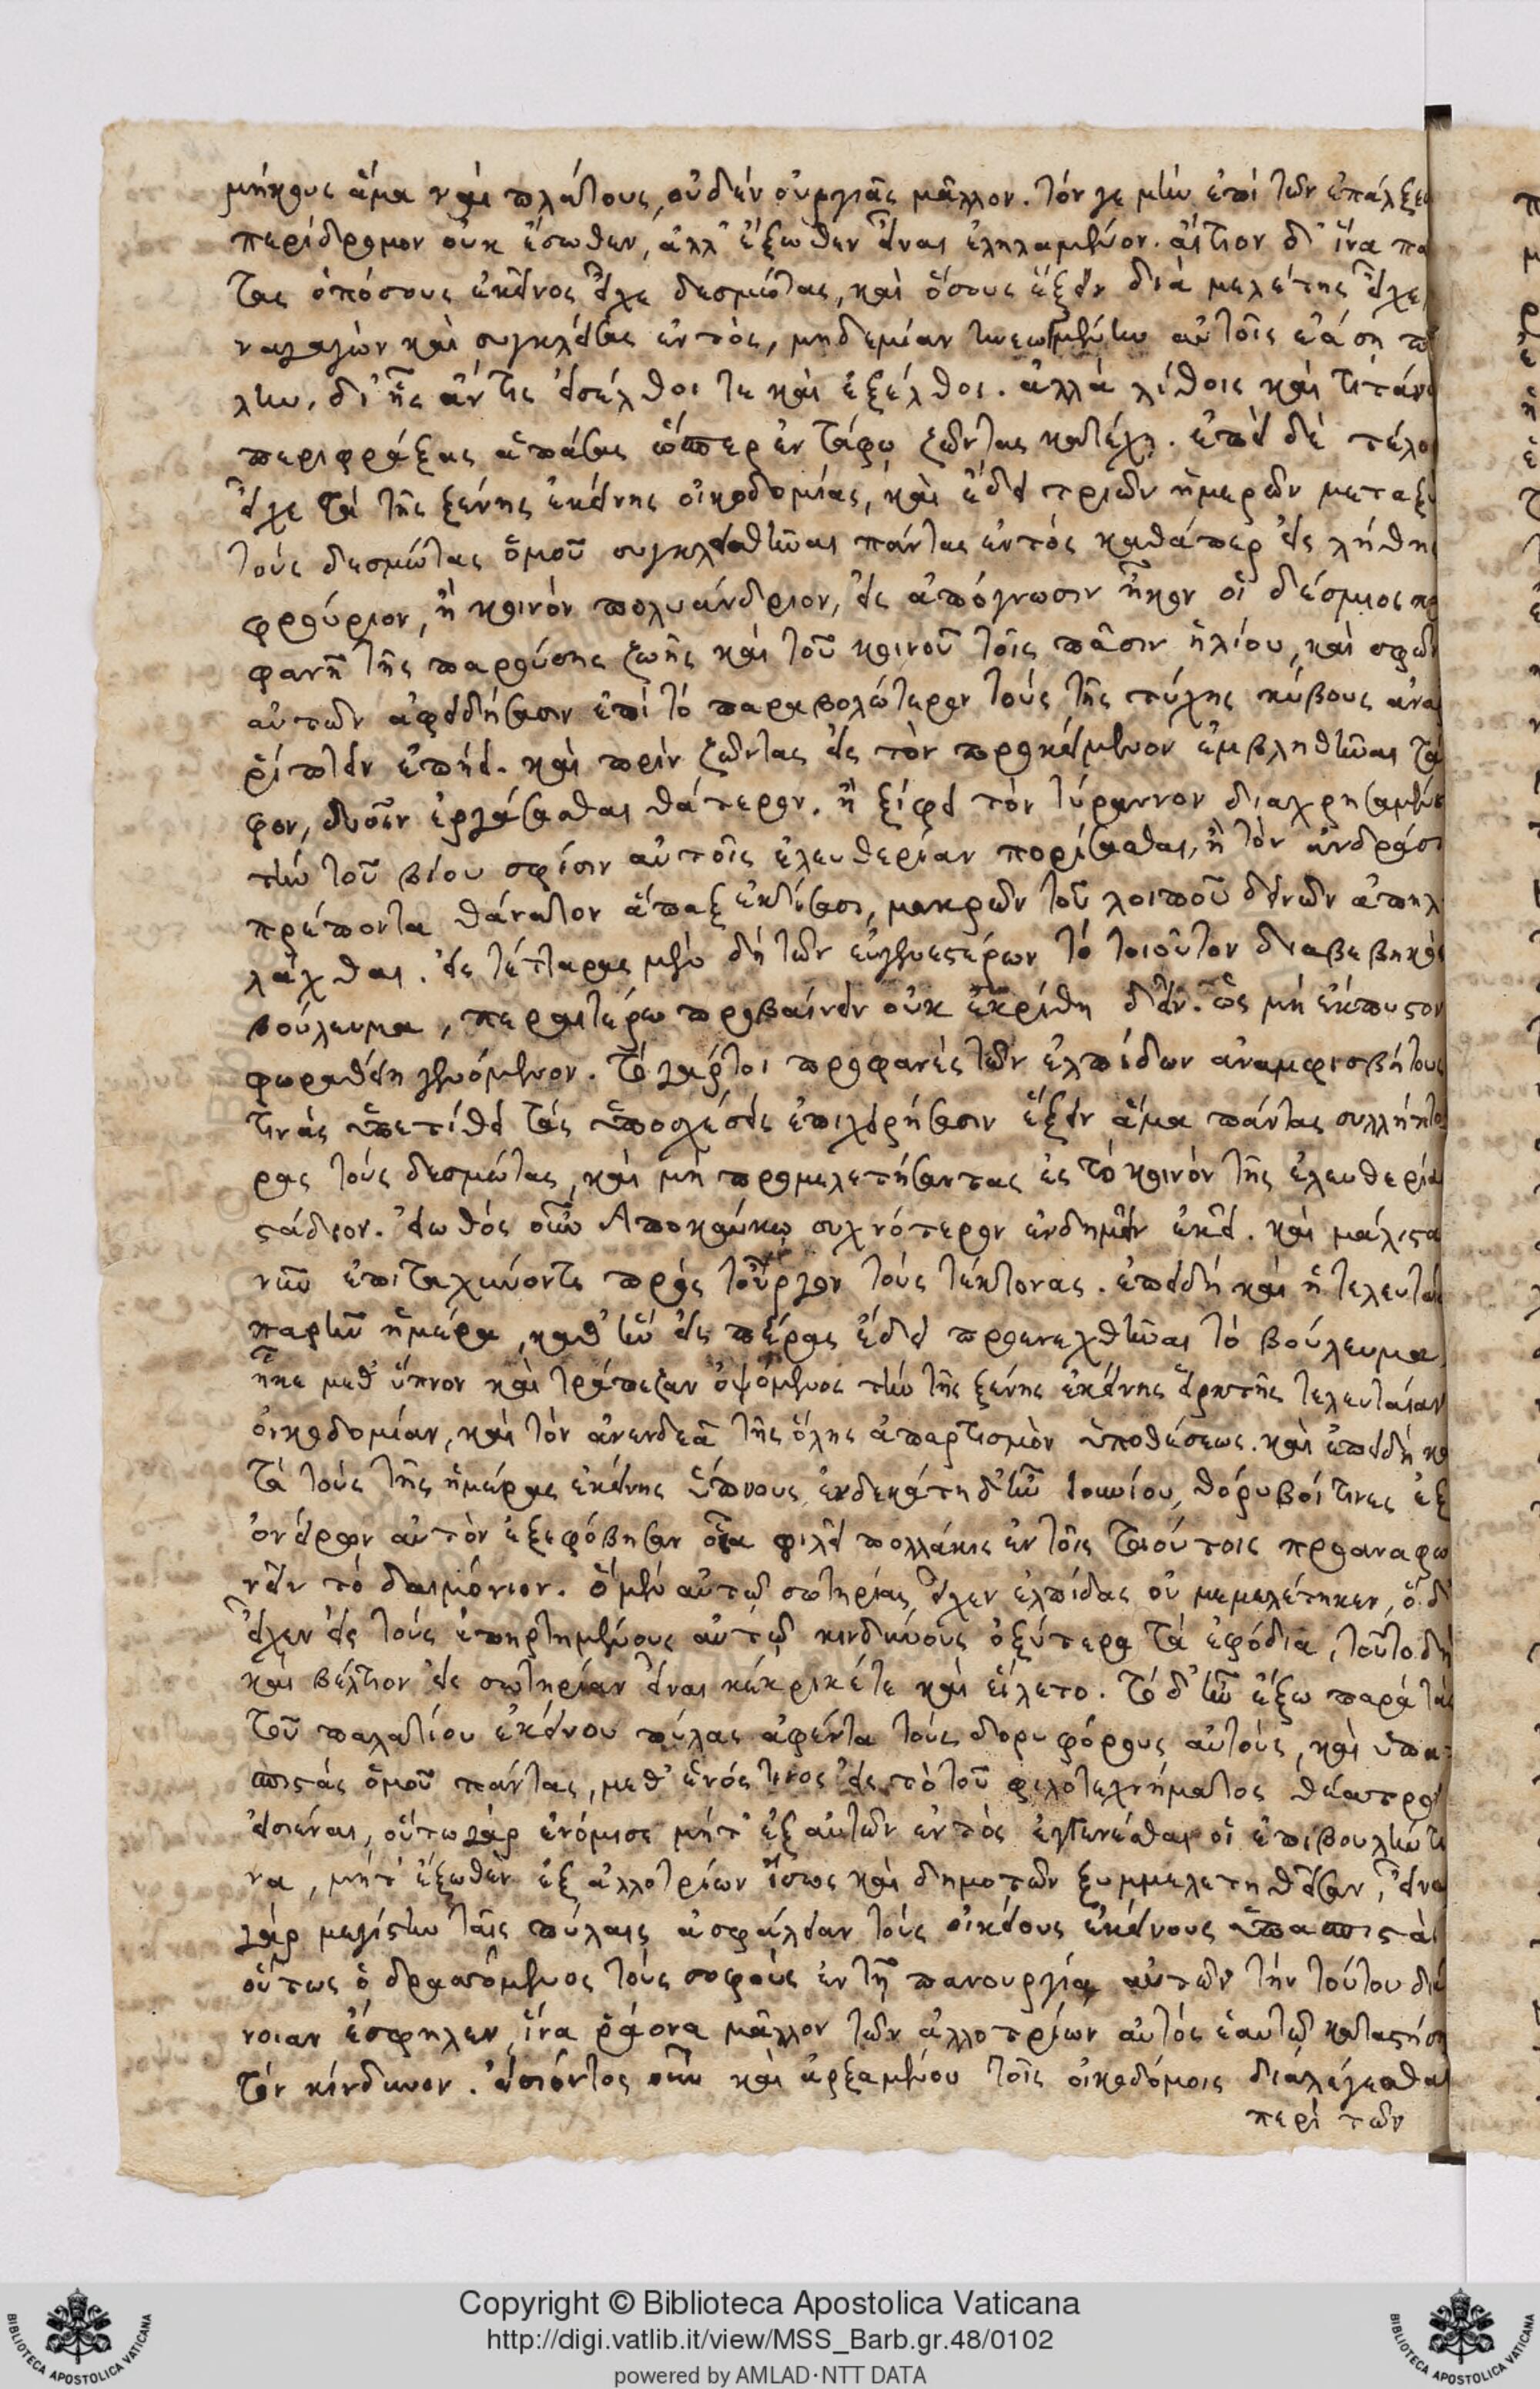 μήκους ἅμα καὶ πλάτους, οὐδὲν ὀργυιᾶς μᾶλλον. τόν γε μὴν ἐπὶ τῶν ἐπάλξεω
περίδρομον οὐκ ἔσωθεν, ἀλλ' ἔξωθεν εἶναι ἐληλαμένον. αἴτιον δ' ἵνα πά
τας ὁπόσους ἐκεῖνος εἶχε δεσμώτας, καὶ ὅσους ἕξειν διὰ μελέτης εἶχε
ναγαγὼν καὶ συγκλείσας ἐντὸς, μηδεμίαν ἀνεωγμένην αὐτοῖς ἐάσῃ πύ
λην, δι' ἧς ἄν τις εἰσέλθοι τε καὶ ἐξέλθοι. ἀλλὰ λίθοις καὶ τιτάνῳ
περιφράξας ἁπάσας ὥσπερ ἐν τάφῳ ζῶντας κατέχῃ. ἐπεὶ δὲ τέλος
εἶχε τὰ τῆς ξένης ἐκείνης οἰκοδομίας, καὶ ἔδει τριῶν ἡμερῶν μεταξὺ
τοὺς δεσμώτας ὁμοῦ συγκλεισθῆναι πάντας ἐντὸς καθάπερ εἰς λήθης
φρούριον, ἢ κοινὸν πολυάνδριον, εἰς ἀπόγνωσιν ἧκον οἱ δέσμιοι πρ
φανῆ τῆς παρούσης ζωῆς καὶ τοῦ κοινοῦ τοῖς πᾶσιν ἡλίου, καὶ σφῶν
αὐτῶν ἀφειδήσασιν ἐπὶ τὸ παραβολώτερον τοὺς τῆς τύχης κύβους ἀνα
ρίπτειν ἐπῄει. καὶ πρὶν ζῶντας εἰς τὸν προκείμενον ἐμβληθῆναι τά
φον, δυοῖν ἐργάσασθαι θάτερον. ἢ ξίφει τὸν τύραννον διαχρησαμένους
τὴν τοῦ βίου σφίσιν αὐτοῖς ἐλευθερίαν πορίσασθαι, ἢ τὸν ἀνδράσι
πρέποντα θάνατον ἅπαξ ἐκτίσασι, μακρῶν τοῦ λοιποῦ δεινῶν ἀπηλ
λάχθαι. εἰς τέτταρας μὲν δὴ τῶν εὐγενεστέρων τὸ τοιοῦτον διαβεβηκὸς
βούλευμα, περαιτέρω προβαίνειν οὐκ ἐκρίθη δεῖν. ὡς μὴ ἔκπυστον
φωραθείη γενόμενον. τὸ γάρ τοι προφανὲς τῶν ἐλπίδων ἀναμφισβήτους
τινὰς ὑπετίθει τὰς ὑποσχέσεις ἐπιχειρήσασιν ἕξειν ἅμα πάντας συλλήπτο
ρας τοὺς δεσμώτας, καὶ μὴ προμελετήσαντας ἐς τὸ κοινὸν τῆς ἐλευθερίας
στάδιον. εἰωθὸς οὖν Ἀποκαύκῳ συχνότερον ἐνδημεῖν ἐκεῖ. καὶ μάλιστα
νῦν ἐπιταχύνοντι πρὸς τοὖργον τοὺς τέκτονας. ἐπειδὴ καὶ ἡ τελευταία
παρῆν ἡμέρα, καθ' ἣν εἰς πέρας ἔδει προενεχθῆναι τὸ βούλευμα,
ἧκε μεθ' ὕπνον καὶ τράπεζαν ὀψόμενος τὴν τῆς ξένης ἐκείνης εἱρκτῆς τελευταίαν
οἰκοδομίαν, καὶ τὸν ἀνενδεᾶ τῆς ὅλης ἀπαρτισμὸν ὑποθέσεως. καὶ ἐπειδὴ κα
τὰ τοὺς τῆς ἡμέρας ἐκείνης ὕπνους, ἑνδεκάτη δ' ἦν Ἰουνίου, θόρυβοί τινες ἐξ
ὀνείρων αὐτὸν ἐξεφόβησαν οἷα φιλεῖ πολλάκις ἐν τοῖς τοιούτοις προαναφω
νεῖν τὸ δαιμόνιον. ὃ μὲν αὐτῷ σωτηρίας εἶχεν ἐλπίδας οὐ μεμελέτηκεν, ὃ δ'
εἶχεν εἰς τοὺς ἐπηρτημένους αὐτῷ κινδύνους ὀξύτερα τὰ ἐφόδια, τοῦτο δὴ
καὶ βέλτιον εἰς σωτηρίαν εἶναι κέκρικέ τε καὶ εἵλετο. τὸ δ' ἦν ἔξω παρὰ τὰς
τοῦ παλατίου ἐκείνου πύλας ἀφέντα τοὺς δορυφόρους αὐτοὺς, καὶ ὑπα
σπιστὰς ὁμοῦ πάντας, μεθ' ἑνός τινος εἰς τὸ τοῦ φιλοτεχνήματος θέατρον
εἰσιέναι, οὕτω γὰρ ἐνόμισε μήτ' ἐξ αὐτῶν ἐντὸς ἐγγενέσθαι οἱ ἐπιβουλήν τι
να, μήτ' ἔξωθεν ἐξ ἀλλοτρίων ἴσως καὶ δημοτῶν ξυμμελετηθεῖσαν, εἶναι
γὰρ μεγίστην ταῖς πύλαις ἀσφάλειαν τοὺς οἰκείους ἐκείνους ὑπασπιστὰς
οὕτως ὁ δρασσόμενος τοὺς σοφοὺς ἐν τῇ πανουργίᾳ αὐτῶν τὴν τούτου διά
νοιαν ἔσφηλεν, ἵνα ῥάονα μᾶλλον τῶν ἀλλοτρίων αὐτὸς ἑαυτῷ καταστήσῃ
τὸν κίνδυνον. εἰσιόντος οὖν καὶ ἀρξαμένου τοῖς οἰκοδόμοις διαλέγεσθαι
περὶ τῶν
Copyright © Biblioteca Apostolica Vaticana
http://digi.vatlib.it/view/MSS_Barb.gr.48/0102
powered by AMLAD·NTT DATA
BIBLIOTECA APOSTOLICA VATICANA
BIBLIOTECA APOSTOLICA VATICANA